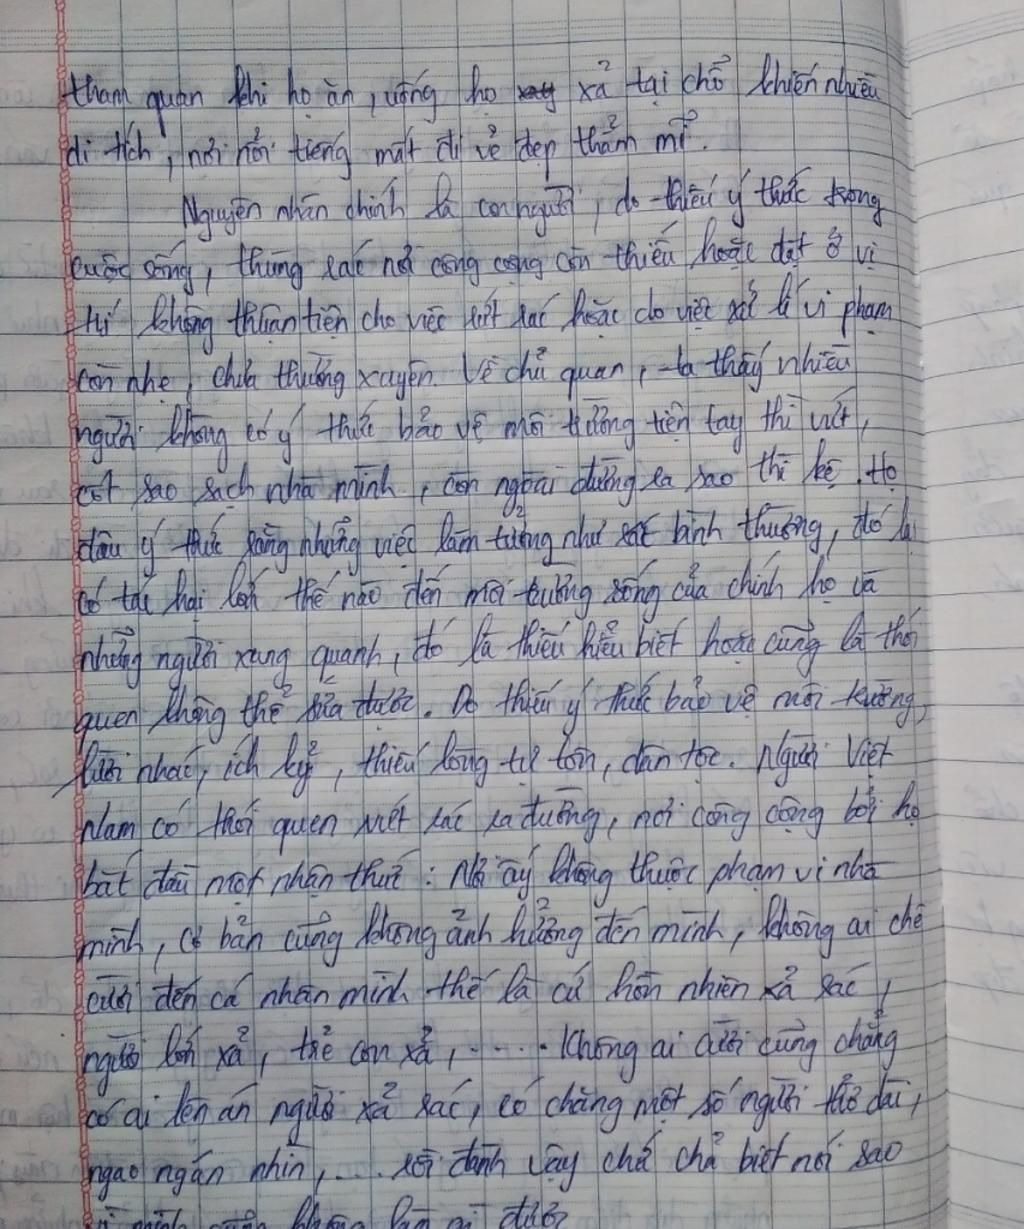 tham quan khi họ ăn, uống họ xả tại chỗ khiến nhiều
di tích, nơi nổi tiếng mất đi vẻ đẹp thẩm mĩ.
Nguyên nhân chính là con người, do thiếu ý thức trong
cuộc sống, thùng rác nơi công cộng còn thiếu hoặc đặt ở vị
trí không thuận tiện cho việc vứt rác hoặc do việc xử lí vi phạm
còn nhẹ, chưa thường xuyên. Về chủ quan, ta thấy nhiều
người không có ý thức bảo vệ môi trường tiện tay thì vứt,
cốt sao sạch nhà mình, còn ngoài đường ra sao thì kệ. Họ
đâu ý thức rằng những việc làm tưởng như rất bình thường, đó lại
có tác hại lớn thế nào đến môi trường sống của chính họ và
những người xung quanh, đó là thiếu hiểu biết hoặc cũng là thói
quen không thể sửa được. Do thiếu ý thức bảo vệ môi trường,
lười nhác, ích kỷ, thiếu lòng tự tôn, dân tộc. Người Việt
Nam có thói quen vứt rác ra đường, nơi công cộng bởi họ
bắt đầu một nhận thức: Nơi ấy không thuộc phạm vi nhà
mình, cơ bản cũng không ảnh hưởng đến mình, không ai chê
cười đến cá nhân mình thế là cứ hồn nhiên xả rác,
người lớn xả, trẻ con xả, .... Không ai cười cũng chẳng
có ai lên án người xả rác, có chăng một số người thở dài,
ngao ngán nhìn, ... rồi đành vậy chứ chả biết nói sao
không làm gì được